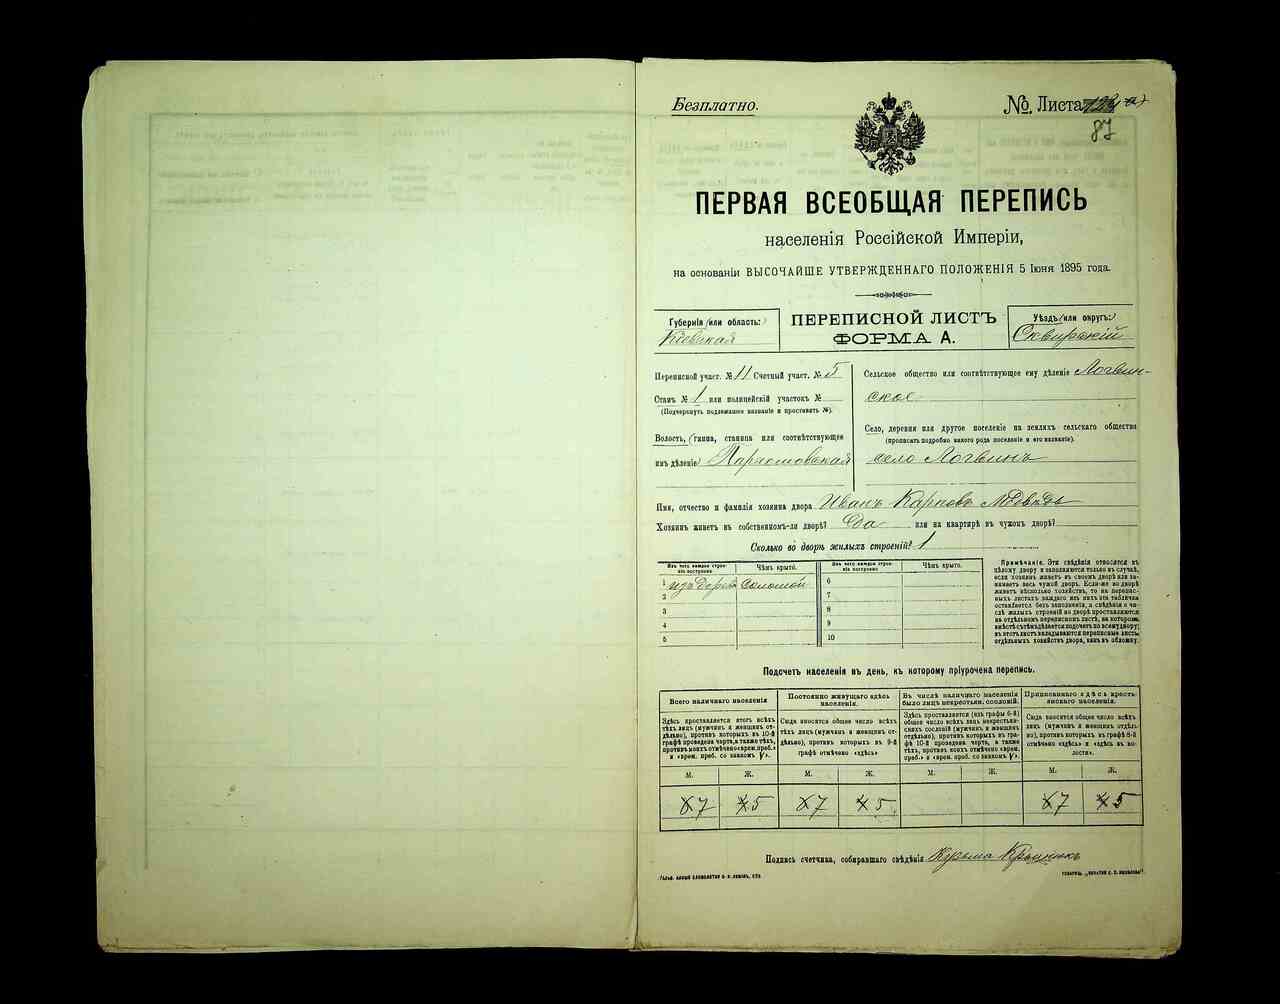 Безплатно.
№ Листа
87
ПЕРВАЯ ВСЕОБЩАЯ ПЕРЕПИСЬ
населенія Россійской Имперіи,
на основаніи ВЫСОЧАЙШЕ УТВЕРЖДЕННАГО ПОЛОЖЕНІЯ 5 Іюня 1895 года.
Губернія (или область:)
Кіевская
ПЕРЕПИСНОЙ ЛИСТЪ
ФОРМА А.
Уѣздъ (или округъ:)
Сквирскій
Переписной участ. № 11 Счетный участ. № 5
Станъ № 1 или полицейскій участокъ №
(Подчеркнуть подлежащее названіе и проставить №).
Волость, (гмина, станица или соотвѣтствующее
имъ дѣленіе)
Сельское общество или соотвѣтствующее ему дѣленіе Логвин-
ское
Село, деревня или другое поселеніе на земляхъ сельскаго общества
(прописать подробно какого рода поселеніе и его названіе).
село Логвинъ
Имя, отчество и фамилія хозяина двора Иванъ Карповъ
Хозяинъ живетъ въ собственномъ-ли дворѣ? Да или на квартирѣ въ чужомъ дворѣ?
Сколько во дворѣ жилыхъ строеній? 1
Изъ чего каждое строеніе построено
Чѣмъ крыто.
Изъ чего каждое строеніе построено
Чѣмъ крыто.
1 изъ дерева соломой
2
3
4
5
6
7
8
9
10
Примѣчаніе. Эти свѣдѣнія относятся къ
цѣлому двору и заполняются только въ случаѣ,
если хозяинъ живетъ въ своемъ дворѣ или за-
нимаетъ весь чужой дворъ. Если-же во дворѣ
живетъ нѣсколько хозяйствъ, то на перепис-
ныхъ листахъ каждаго изъ нихъ эта табличка
оставляется безъ заполненія, а свѣдѣнія о чи-
слѣ жилыхъ строеній во дворѣ проставляются
на отдѣльномъ переписномъ листѣ, на которомъ
вмѣстѣ съ тѣмъ дѣлается подсчетъ по всему двору;
въ этотъ листъ вкладываются переписные листы
отдѣльныхъ хозяйствъ двора, какъ въ обложку.
Подсчетъ населенія въ день, къ которому пріурочена перепись.
Всего наличнаго населенія
Здѣсь проставляется итогъ всѣхъ
тѣхъ лицъ (мужчинъ и женщинъ от-
дѣльно), противъ которыхъ въ 10-й
графѣ проведена черта, а также тѣхъ,
противъ коихъ отмѣчено «врем. преб.»
и «врем. преб. со знакомъ V».
Постоянно живущаго здѣсь
населенія.
Сюда вносится общее число всѣхъ
тѣхъ лицъ (мужчинъ и женщинъ от-
дѣльно), противъ которыхъ въ 9-й
графѣ отмѣчено «здѣсь»
Въ числѣ наличнаго населенія
было лицъ некрестьян. сословій.
Здѣсь проставляется (изъ графы 6-й)
общее число всѣхъ лицъ некрестьян-
скихъ сословій (мужчинъ и женщинъ
отдѣльно), противъ которыхъ въ гра-
фѣ 10-й проведена черта, а также
тѣхъ, противъ коихъ отмѣчено «врем.
преб.» и «врем. преб. со знакомъ V».
Приписаннаго здѣсь кресть-
янскаго населенія.
Сюда вносится общее число всѣхъ
тѣхъ лицъ (мужчинъ и женщинъ отдѣль-
но), противъ которыхъ въ графѣ 8-й
отмѣчено «здѣсь» и «здѣсь въ во-
лости».
М. Ж. М. Ж. М. Ж. М. Ж.
7 5 7 5 7 5
Подпись счетчика, собиравшаго свѣдѣнія Кузьма